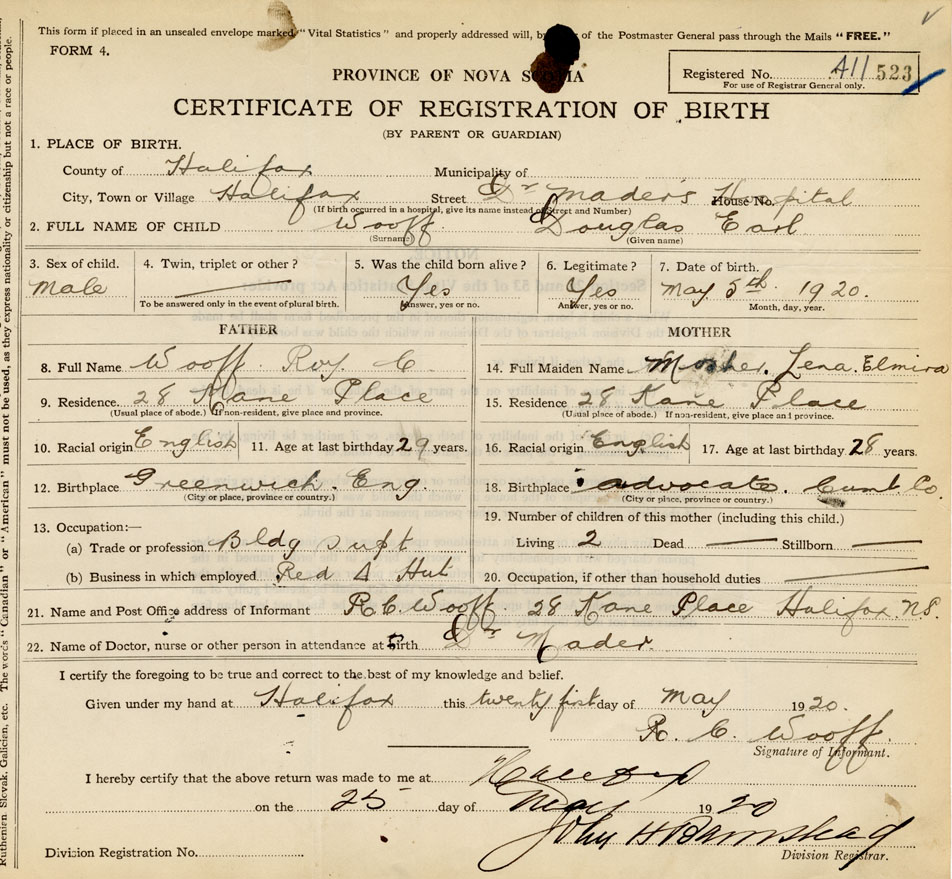 This form if placed in an unsealed envelope marked "Vital Statistics" and properly addressed will, by of the Postmaster General pass through the Mails "FREE."
FORM 4.
Registered No. A11 523
For use of Registrar General only.
PROVINCE OF NOVA SCOTIA
CERTIFICATE OF REGISTRATION OF BIRTH
(BY PARENT OR GUARDIAN)
1. PLACE OF BIRTH.
County of Halifax Municipality of
City, Town or Village Halifax Street Dr Mader's House No. Hospital
(If birth occurred in a hospital, give its name instead of Street and Number)
2. FULL NAME OF CHILD Wooff Douglas Earl
(Surname) (Given name)
3. Sex of child. 4. Twin, triplet or other? 5. Was the child born alive? 6. Legitimate? 7. Date of birth.
Male Yes Yes May 5th 1920.
To be answered only in the event of plural birth. Answer, yes or no. Answer, yes or no. Month, day, year.
FATHER MOTHER
8. Full Name Wooff Roy. C 14. Full Maiden Name Mosher. Lena. Elmira
9. Residence. 28 Kane Place 15. Residence 28 Kane Place
(Usual place of abode.) (If non-resident, give place and province. (Usual place of abode.) If non-resident, give place and province.
10. Racial origin English 11. Age at last birthday 29 years. 16. Racial origin English 17. Age at last birthday 28 years.
12. Birthplace Greenwich. Eng. 18. Birthplace advocate. Cumt. Co.
(City or place, province or country.) (City or place, province or country.)
13. Occupation:— 19. Number of children of this mother (including this child.)
(a) Trade or profession Bldg supt Living 2 Dead — Stillborn —
(b) Business in which employed Red Hut 20. Occupation, if other than household duties —
21. Name and Post Office address of Informant R.C. Wooff. 28 Kane Place Halifax N.S.
22. Name of Doctor, nurse or other person in attendance at birth Dr Mader.
I certify the foregoing to be true and correct to the best of my knowledge and belief.
Given under my hand at Halifax this twenty first day of May 1920.
R. C. Wooff.
Signature of Informant.
I hereby certify that the above return was made to me at Halifax
on the 25 day of May 1920
John H Barnstead
Division Registrar.
Division Registration No.
Ruthenian, Slovak, Galician, etc. The words "Canadian" or "American" must not be used, as they express nationality or citizenship but not a race or people.